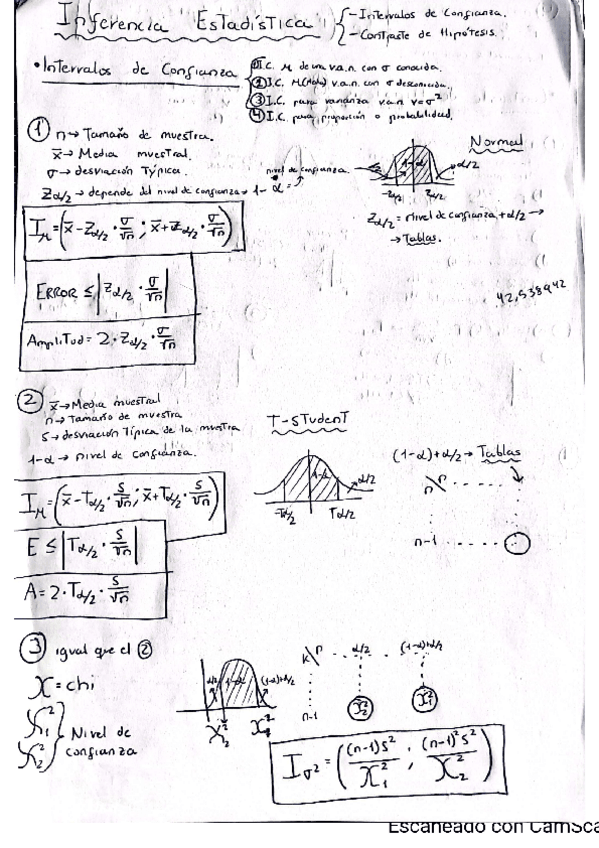 Inferencia Estadística
- Intervalos de Confianza.
- Contraste de Hipótesis.
• Intervalos de Confianza
① I.C. M de una v.a.n. con σ conocida.
② I.C. M(Media) v.a.n. con σ desconocida.
③ I.C. para varianza v.a.n v=σ²
④ I.C. para proporción o probabilidad.
① n → Tamaño de muestra.
x̄ → Media muestral.
σ → desviación Típica.
Zα/2 → depende del nivel de confianza → 1-α =
nivel de confianza.
Normal
1-α
α/2
-Zα/2 Zα/2
Zα/2 = nivel de confianza + α/2 →
→ Tablas.
I_M = (x̄ - Zα/2 · σ/√n ; x̄ + Zα/2 · σ/√n)
ERROR ≤ |Zα/2 · σ/√n|
Amplitud = 2 · Zα/2 · σ/√n
42,538942
② x̄ → Media muestral
n → Tamaño de muestra
s → desviación Típica de la muestra
1-α → nivel de confianza.
T-STudenT
1-α
α/2
-Tα/2 Tα/2
(1-α)+α/2 → Tablas
n
n-1
I_M = (x̄ - Tα/2 · s/√n ; x̄ + Tα/2 · s/√n)
E ≤ |Tα/2 · s/√n|
A = 2 · Tα/2 · s/√n
③ igual que el ②
X = chi
X₁²
X₂²
Nivel de
confianza
α/2 1-α (1-α)+α/2
X₂²
α/2 (1-α)+α/2
n-1 X₂² X₁²
I_σ² = ((n-1)s²/X₁² ; (n-1)²s²/X₂²)
Escaneado con CamSca